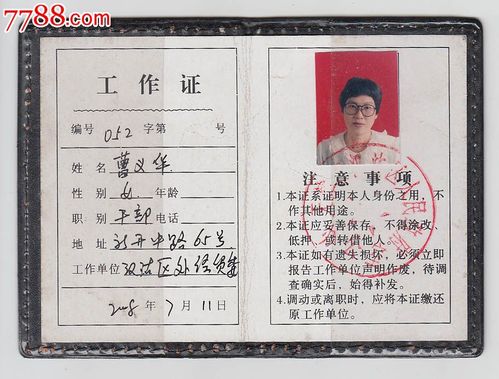 7788.com
工作证
编号 052 字第 号
姓名 曹义华
性别 女 年龄
职别 干部 电话
地址 65号
工作单位
2008年7月11日
注意事项
1.本证系证明本人身份之用，不
作其他用途。
2.本证应妥善保存，不得涂改、
低押 或转借他人。
3.本证如有遗失损坏，必须立即
报告工作单位声明作废，待调
查确实后，始得补发。
4.调动或离职时，应将本证缴还
原工作单位。